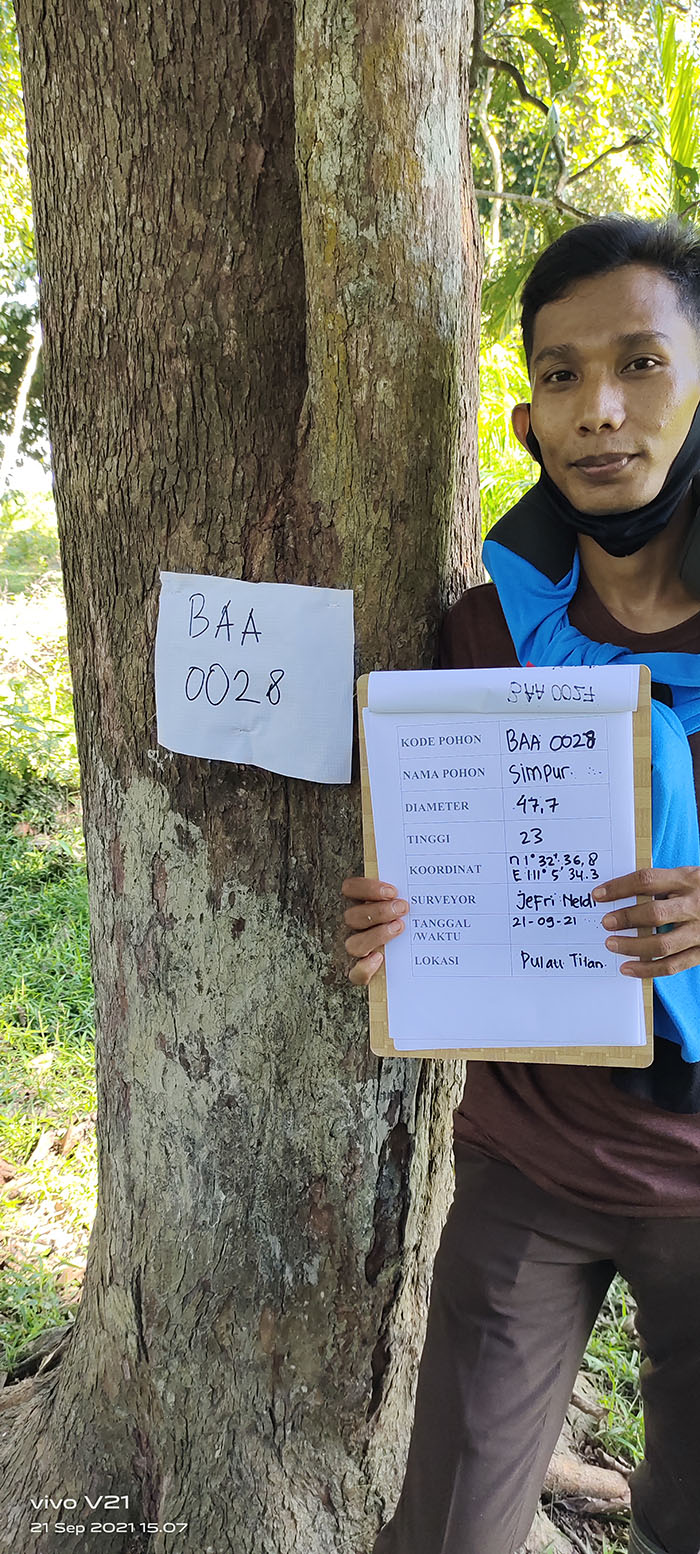 BAA
0028
BAA 0027
KODE POHON BAA 0028
NAMA POHON Simpur
DIAMETER 47,7
TINGGI 23
KOORDINAT n 1° 32' 36,8
E 111° 5' 34.3
SURVEYOR Jefri Neldi
TANGGAL
/WAKTU 21-09-21
LOKASI Pulau Titan.
vivo V21
21 Sep 2021 15.07